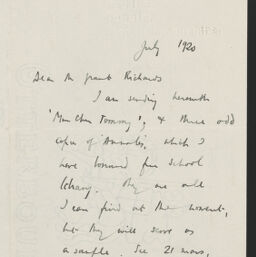 July 1920
Dear Mr Grant Richards
I am sending herewith
'Mon Cher Tommy', & three odd
copies of 'Annals', which I
have borrowed from School
library. They are all
I can find at the moment,
but they will serve as
a sample. See 21 mars,